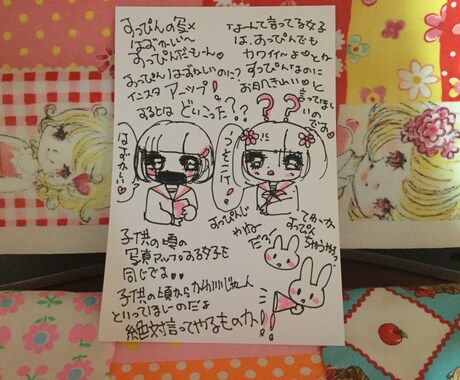 すっぴんの写メ
はずかしい〜
すっぴんだもーん
すっぴんはずかしいのに?
インスタ アーップ!
するとは どいこった??
なーんて言ってる女子
は、すっぴんでも
カワイイ〜よとか
すっぴんなのに
お肌きれい と
言ってほしいの
です
はずかしい
すっぴんじ
ゃねー
だろー
てゆーか
すっぴん
ちゃうやろっ
子供の頃の
写真アップする女子も
同じです
子供の頃からかわいいじゃーん
といってほしーのだよ
絶対言ってやるものか!